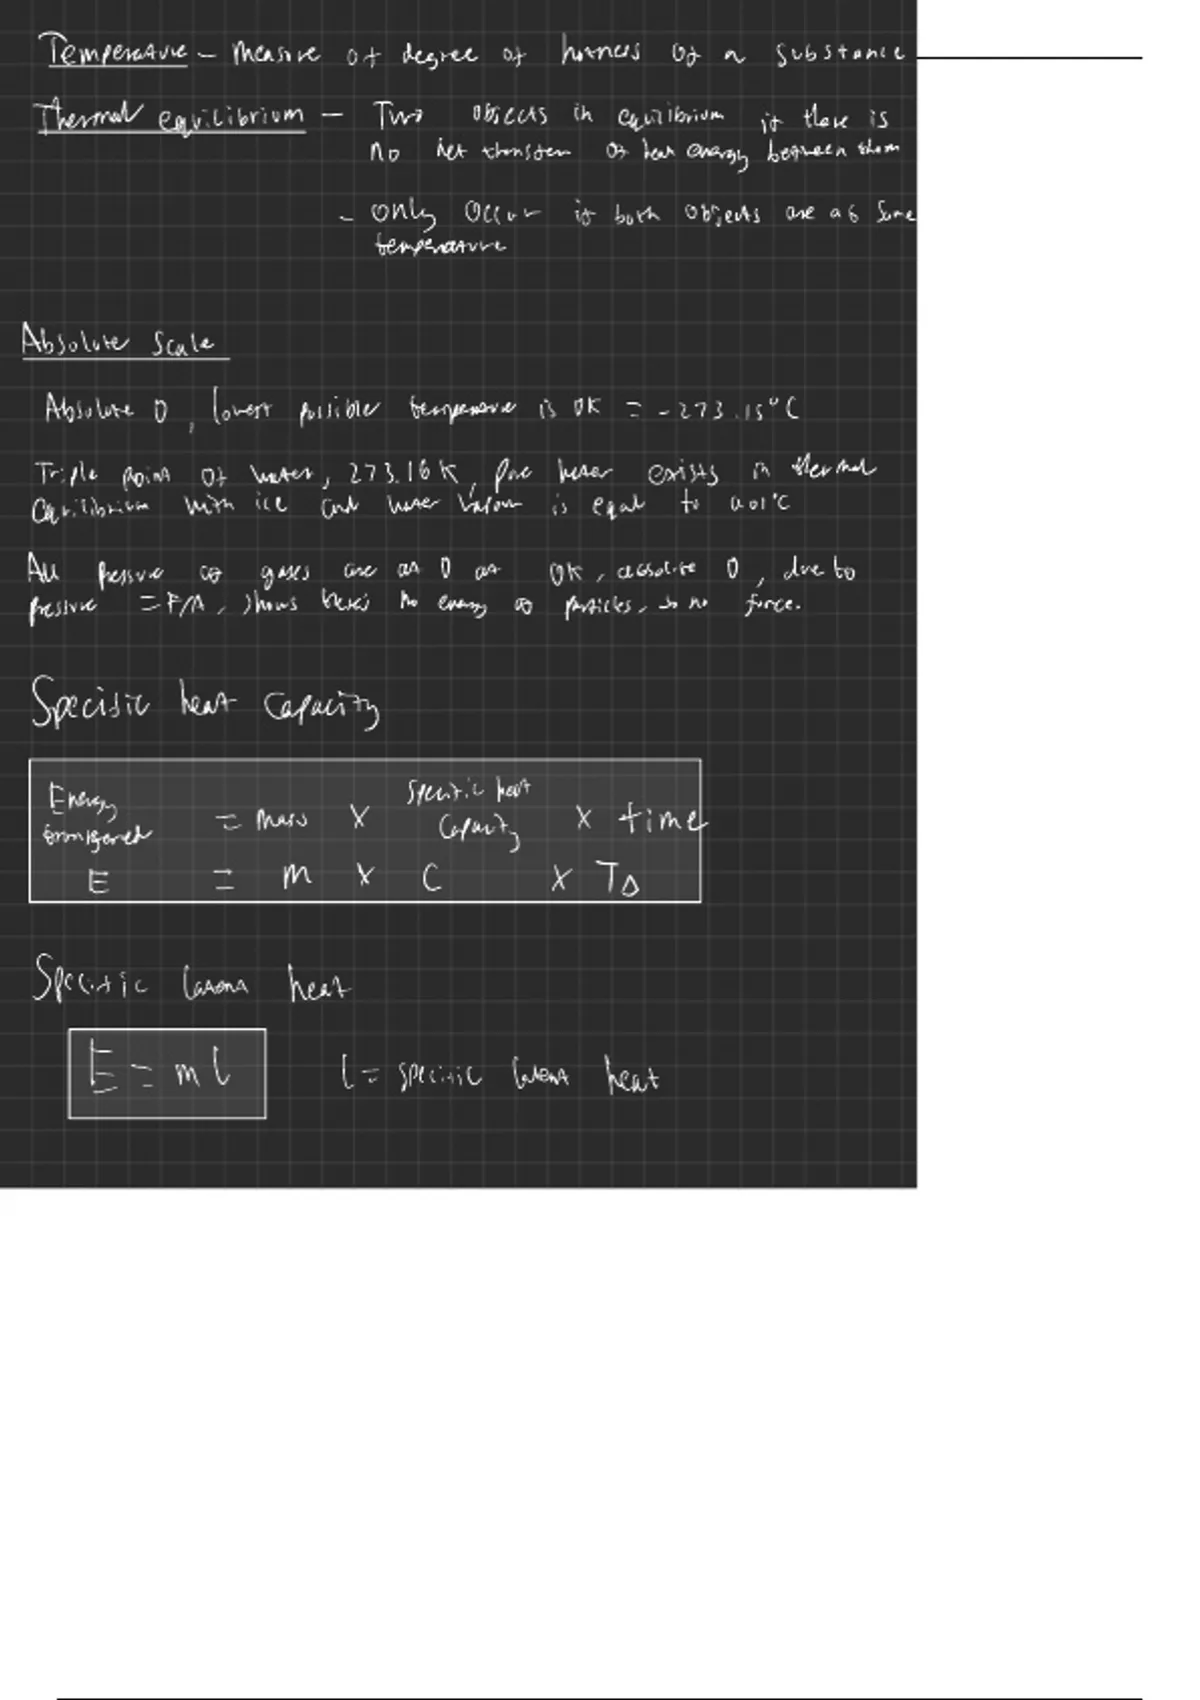 Temperature - Measure of degree of hotness of a substance
Thermal equilibrium - Two objects in equilibrium if there is
no net transfer of heat energy between them
- only occur if both objects are at same
temperature
Absolute Scale
Absolute 0, lowest possible temperature is 0K = -273.15°C
Triple point of water, 273.16K, pure water exists in thermal
equilibrium with ice and water vapour is equal to 0.01°C
All pressure of gases are at 0 at 0K, absolute 0, due to
pressure = F/A, shows there's no energy of particles, so no force.
Specific heat capacity
Energy transferred = mass x specific heat capacity x time
E = m x C x TΔ
Specific latent heat
E = ml l = specific latent heat